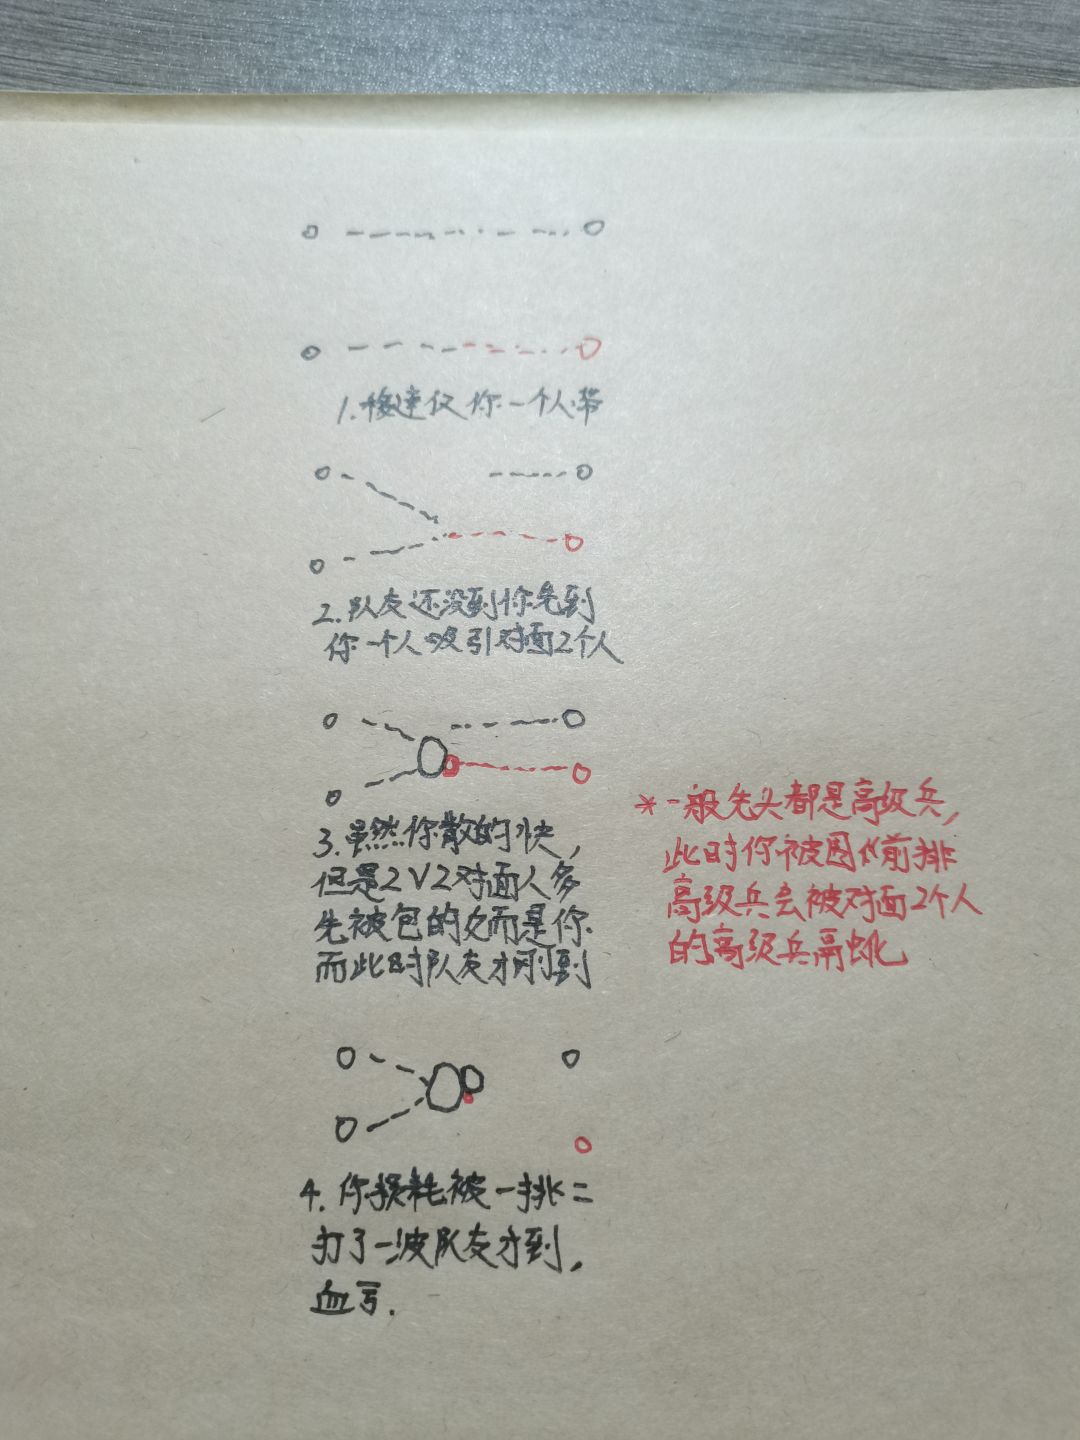 1.移速仅你一个人带
2.队友还没到你先到
你一个人吸引对面2个人
3.虽然你散的快,
但是2V2对面人多
先被包的反而是你
而此时队友才刚到
*一般先头都是高级兵,
此时你被围你前排
高级兵会被对面2个人
的高级兵鬲虫化
4.你损耗被一挑二
打了一波队友才到,
血亏.